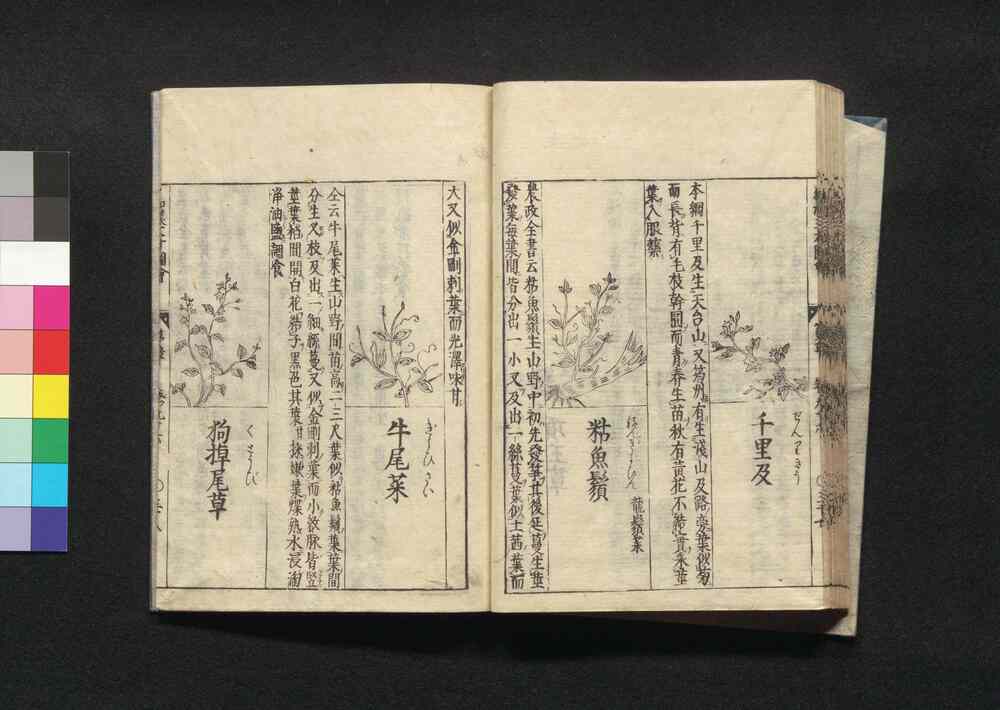 千里及
せんりきう
本綱千里及生天台山又筠州有生淺山及路旁葉似菊
而長背有毛枝幹圓而青春生苗秋有黃花不結實采莖
葉入服藥
粘魚鬚
龍鬚菜
農政全書云粘魚鬚生山野中初先發笋其後延蔓生莖
發葉每葉間皆分出一小叉及出一絲蔓葉似土茜葉而
大又似金剛刺葉而光澤味甘
牛尾菜
ぎうひさい
仝云牛尾菜生山野間苗高二三尺葉似粘魚鬚葉葉間
分生叉枝及出一細絲蔓又似金剛刺葉而小紋脉皆竪
莖葉梢間開白花結子黑色其葉甘採嫩葉煠熟水浸淘
淨油鹽調食
狗掉尾草